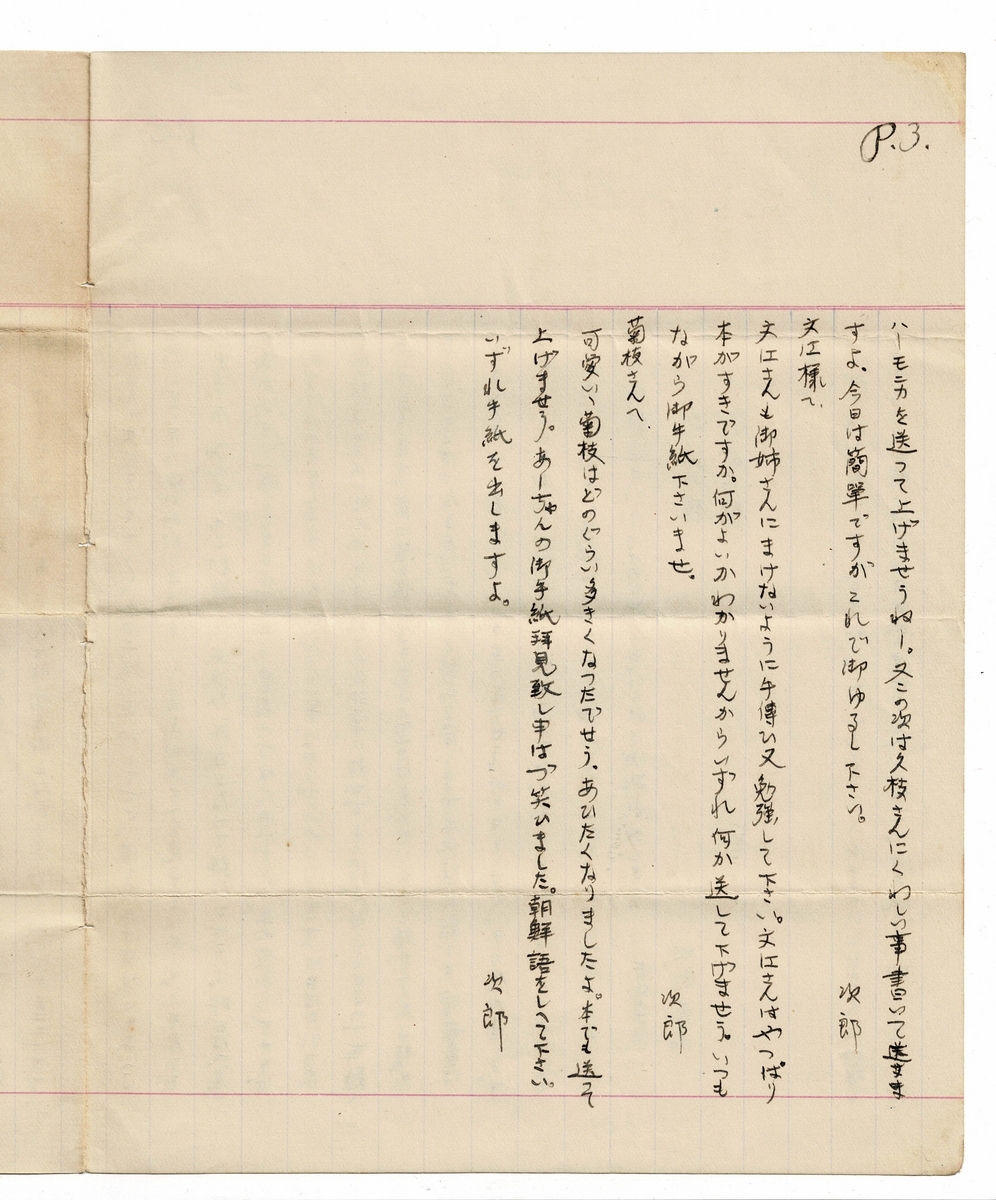 P.3.
ハーモニカを送つて上げませうねー。又この次は久枝さんにくわしい事書いて送りま
すよ。今日は簡單ですがこれで御ゆるし下さい。
次郎
文江様へ、
文江さんも御姉さんにまけないように手傳ひ又勉強して下さい。文江さんはやつぱり
本がすきですか。何がよいかわかりませんからいずれ何か送して下げませう。いつも
ながら御手紙下さいませ。
次郎
菊枝さんへ、
可愛いゝ菊枝はどのぐらい多きくなつたでせう。あひたくなりましたよ。本でも送つて
上げませう。あーちゃんの御手紙拜見致し申はづ笑ひました。朝鮮語をしへて下さい。
いずれ手紙を出しますよ。
次郎